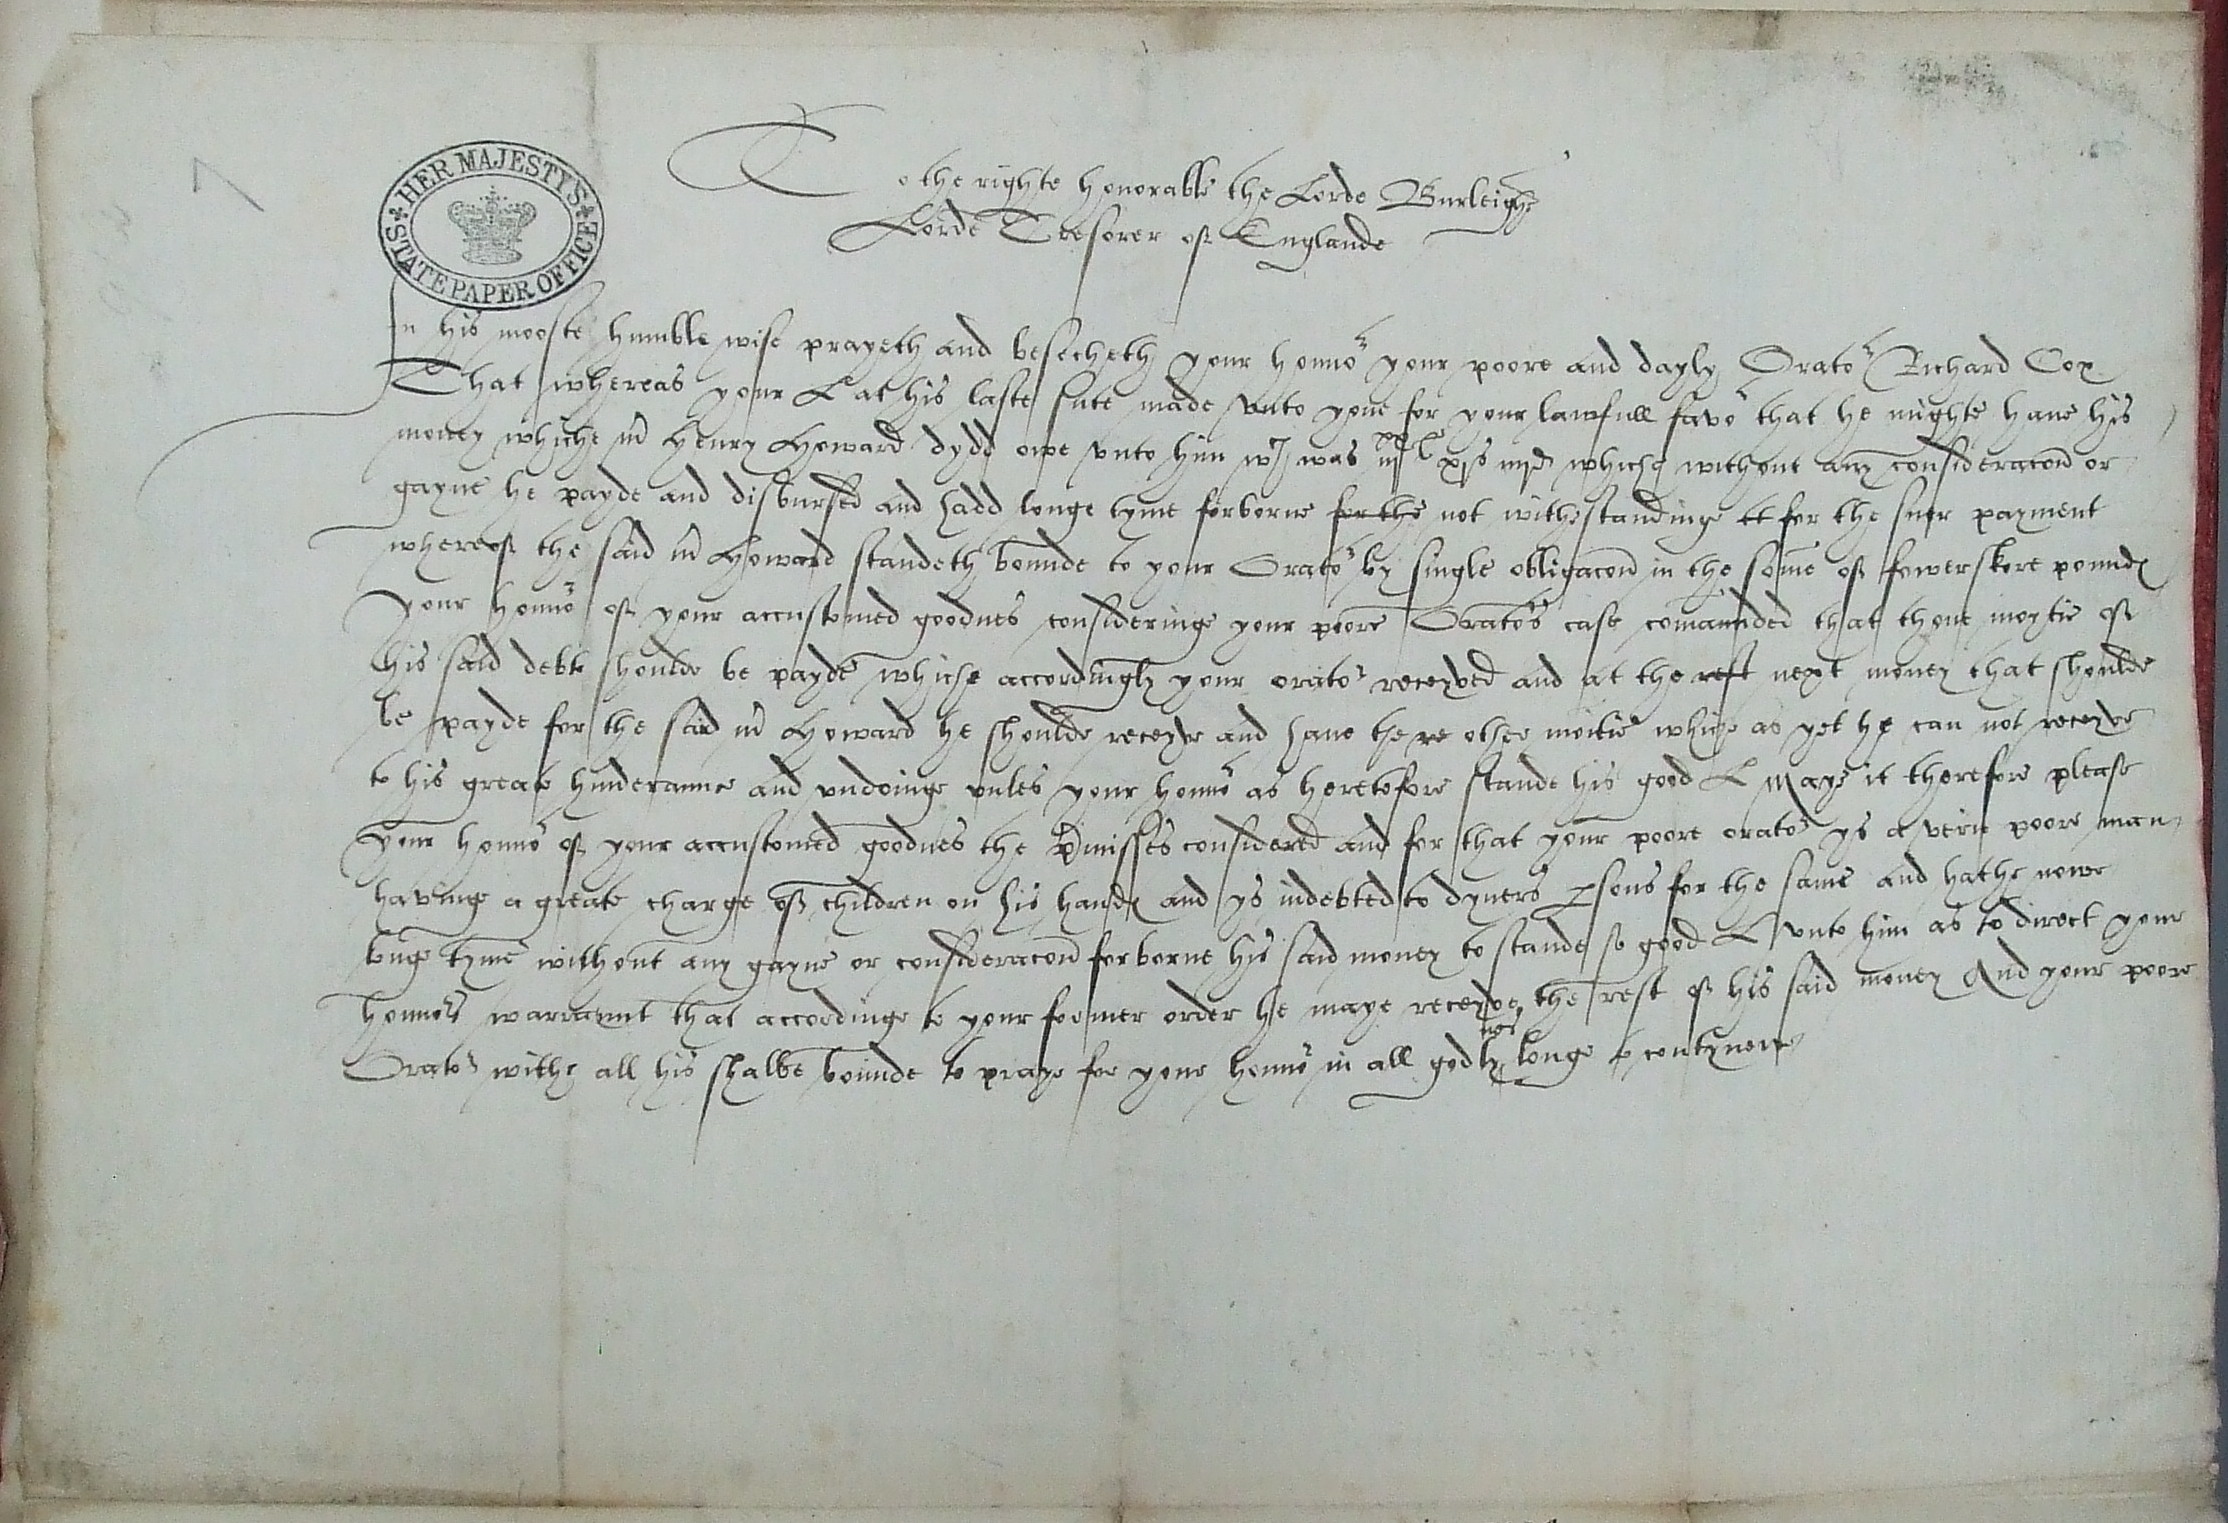 HER MAJESTYS STATE PAPER OFFICE
To the righte honorable the Lorde Burleighe
Lorde Tresorer of Englande
In his mooste humble wise prayeth and besecheth your honno^r your poore and dayly Orato^r Richard Cox
That whereas your L at his laste sute made vnto youe for your lawfull favo^r that he mighte haue his
money whiche m^r Henry Howard dydd owe vnto him w^ch was iiij^xx l xjs iiijd whiche without any consideracon or
gayne he payde and disbursed and hadd longe tyme forborne for the not withestandinge tt for the suer payment
whereof the said m^r Howard standeth bounde to your Orato^r by single obligacon in the some of fowerskore pound
your honno^r of your accustomed goodnes consideringe your poore Orato^rs case comaunded that thone moytie of
his said debt shoulde be payde whiche accordingly your orato^r receyved and at the rest next money that shoulde
be payde for the said m^r Howard he shoulde receyve and haue the re other moitie whiche as yet he can not receyve
to his greate hinderaunce and vndoinge vnles your honno^r as heretofore stande his good L Maye it therefore please
your honno^r of your accustomed goodnes the p^rmisses considered and for that your poore orato^r ys a verie poore man
havinge a greate charge of children on his hand and ys indebted to dyuers psons for the same and hathe nowe
longe tyme without any gayne or consideracon forborne his said money to stande so good L vnto him as to direct your
honno^rs warraunt that accordinge to your former order he maye receyve the rest of his said money And your poore
Orato^r withe all his shalbe bounde to praye for your honno^r in all godly longe to contynew